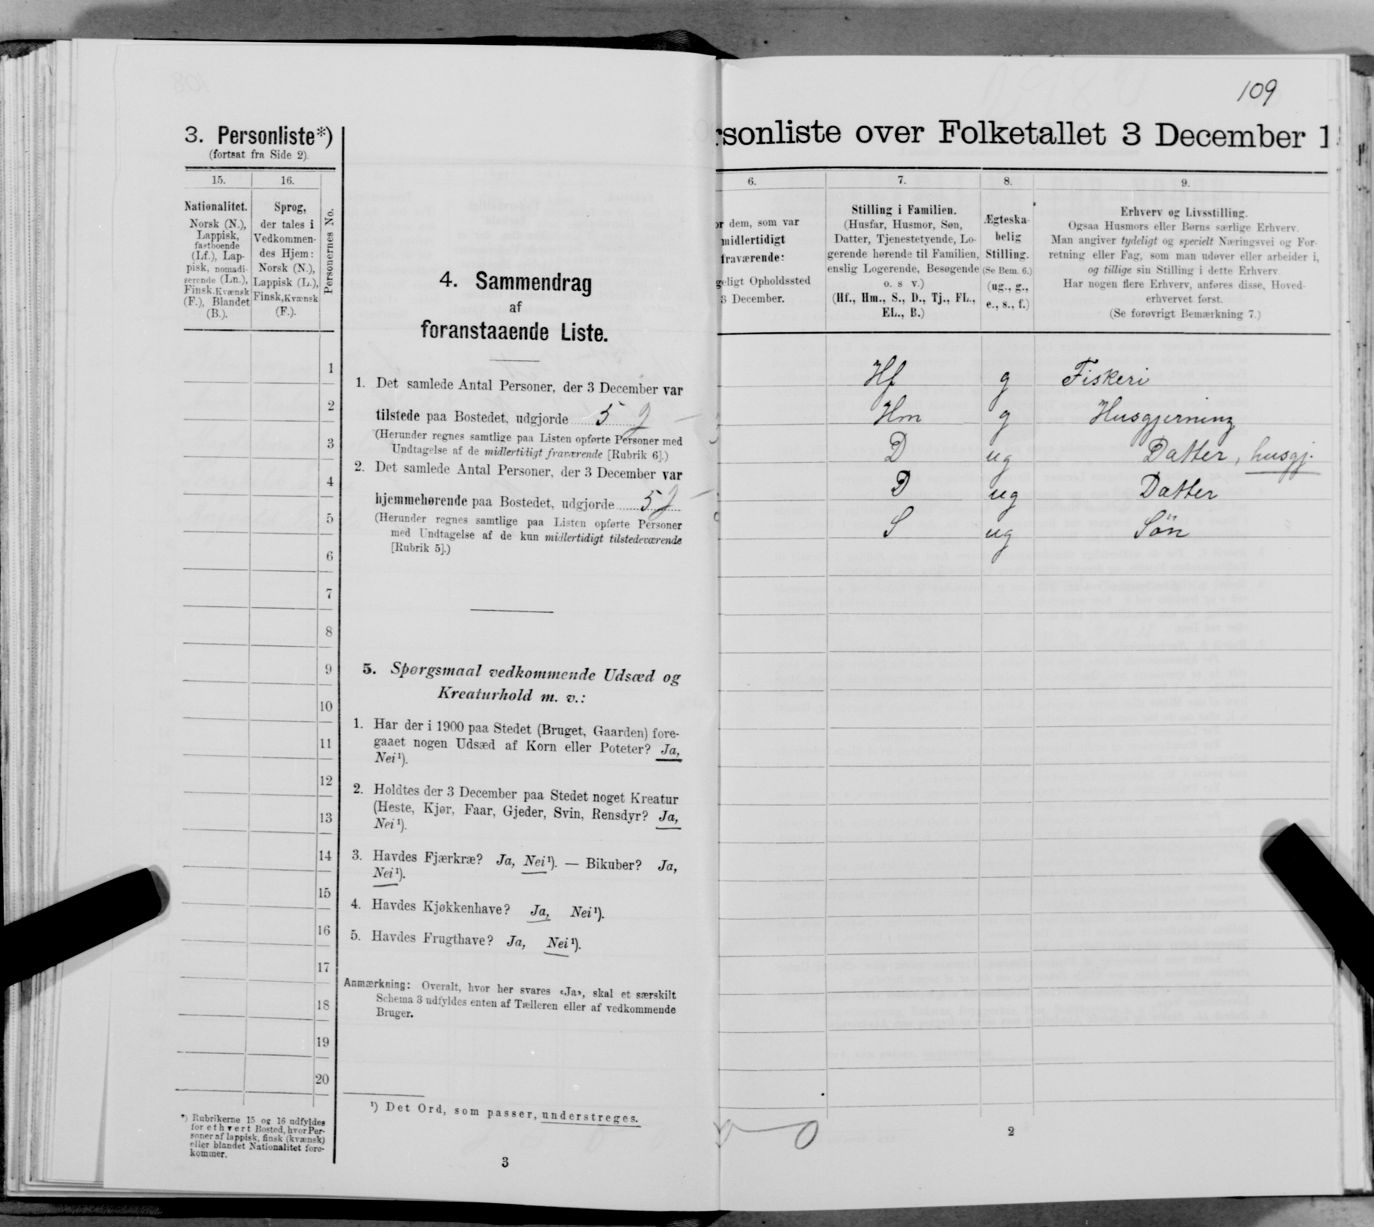 3. Personliste*)
(fortsat fra Side 2).
15.
16.
Nationalitet.
Norsk (N.),
Lappisk,
fastboende
(Lf.), Lap-
pisk, nomadi-
serende (Ln.),
Finsk, Kvænsk
(F.), Blandet
(B.).
Sprog,
der tales i
Vedkommen-
des Hjem:
Norsk (N.),
Lappisk (L.),
Finsk, Kvænsk
(F.).
Personernes No.
1
2
3
4
5
6
7
8
9
10
11
12
13
14
15
16
17
18
19
20
*) Rubrikerne 15 og 16 udfyldes
for ethvert Bosted, hvor Per-
soner af lappisk, finsk (kvænsk)
eller blandet Nationalitet fore-
kommer.
4. Sammendrag
af
foranstaaende Liste.
1. Det samlede Antal Personer, der 3 December var
tilstede paa Bostedet, udgjorde 5
(Herunder regnes samtlige paa Listen opførte Personer med
Undtagelse af de midlertidigt fraværende [Rubrik 6].)
2. Det samlede Antal Personer, der 3 December var
hjemmehørende paa Bostedet, udgjorde 5
(Herunder regnes samtlige paa Listen opførte Personer
med Undtagelse af de kun midlertidigt tilstedeværende
[Rubrik 5].)
5. Spørgsmaal vedkommende Udsæd og
Kreaturhold m. v.:
1. Har der i 1900 paa Stedet (Bruget, Gaarden) fore-
gaaet nogen Udsæd af Korn eller Poteter? Ja,
Nei¹).
2. Holdtes der 3 December paa Stedet noget Kreatur
(Heste, Kjør, Faar, Gjeder, Svin, Rensdyr? Ja,
Nei¹).
3. Havdes Fjærkræ? Ja, Nei¹). — Bikuber? Ja,
Nei¹).
4. Havdes Kjøkkenhave? Ja, Nei¹).
5. Havdes Frugthave? Ja, Nei¹).
Anmærkning: Overalt, hvor her svares «Ja», skal et særskilt
Schema 3 udfyldes enten af Tælleren eller af vedkommende
Bruger.
¹) Det Ord, som passer, understreges.
3
109
rsonliste over Folketallet 3 December 1
6.
7.
8.
9.
or dem, som var
midlertidigt
fraværende:
geligt Opholdssted
3 December.
Stilling i Familien.
(Husfar, Husmor, Søn,
Datter, Tjenestetyende, Lo-
gerende hørende til Familien,
enslig Logerende, Besøgende
o. s v.)
(Hf., Hm., S., D., Tj., FL.,
EL., B.)
Ægteska-
belig
Stilling.
(Se Bem. 6.)
(ug., g.,
e., s., f.)
Erhverv og Livsstilling.
Ogsaa Husmors eller Børns særlige Erhverv.
Man angiver tydeligt og specielt Næringsvei og For-
retning eller Fag, som man udøver eller arbeider i,
og tillige sin Stilling i dette Erhverv.
Har nogen flere Erhverv, anføres disse, Hoved-
erhvervet først.
(Se forøvrigt Bemærkning 7.)
Hf g Fiskeri
Hm g Husgjerning
D ug Datter, husgj.
D ug Datter
S ug Søn
2